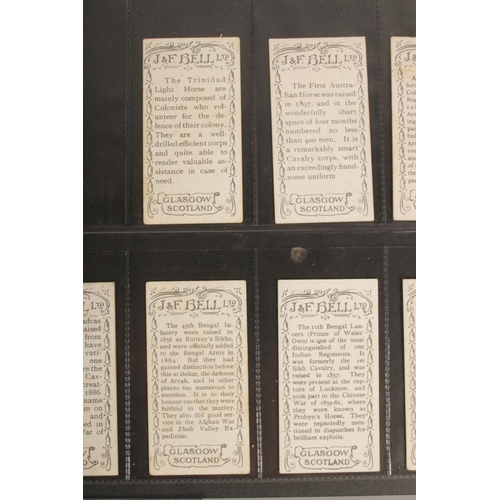 J&F BELL LTD
The Trinidad
Light Horse are
mainly composed of
Colonists who vol-
unteer for the de-
fence of their colony.
They are a well-
drilled efficient corps,
and quite able to
render valuable as-
sistance in case of
need.
GLASGOW
SCOTLAND
J&F BELL LTD
The First Austra-
lian Horse was raised
in 1897, and in the
wonderfully short
space of four months
numbered no less
than 400 men. It
is a remarkably smart
Cavalry corps, with
an exceedingly hand-
some uniform
GLASGOW
SCOTLAND
LTD
adras
raised
from
have
vari-
one
the
Cav-
reat-
1886
name
m on
and
d in
ar of
J&F BELL LTD
The 45th Bengal In-
fantry were raised in
1856 as Rattray's Sikhs,
and were officially added
to the Bengal Army in
1864. But they had
gained distinction before
this at Behar, the defence
of Arrah, and in other
places too numerous to
mention. It is to their
honour too that they were
faithful in the mutiny.
They also did good ser-
vice in the Afghan War
and Zhob Valley Ex-
pedition.
GLASGOW
SCOTLAND
J&F BELL LTD
The 11th Bengal Lan-
cers (Prince of Wales'
Own) is one of the most
distinguished of our
Indian Regiments. It
was formerly the 1st
Sikh Cavalry, and was
raised in 1857. They were
present at the cap-
ture of Lucknow, and
took part in the Chinese
War of 1859-61, where
they were known as
Probyn's Horse. They
were repeatedly men-
tioned in dispatches for
brilliant exploits.
GLASGOW
SCOTLAND